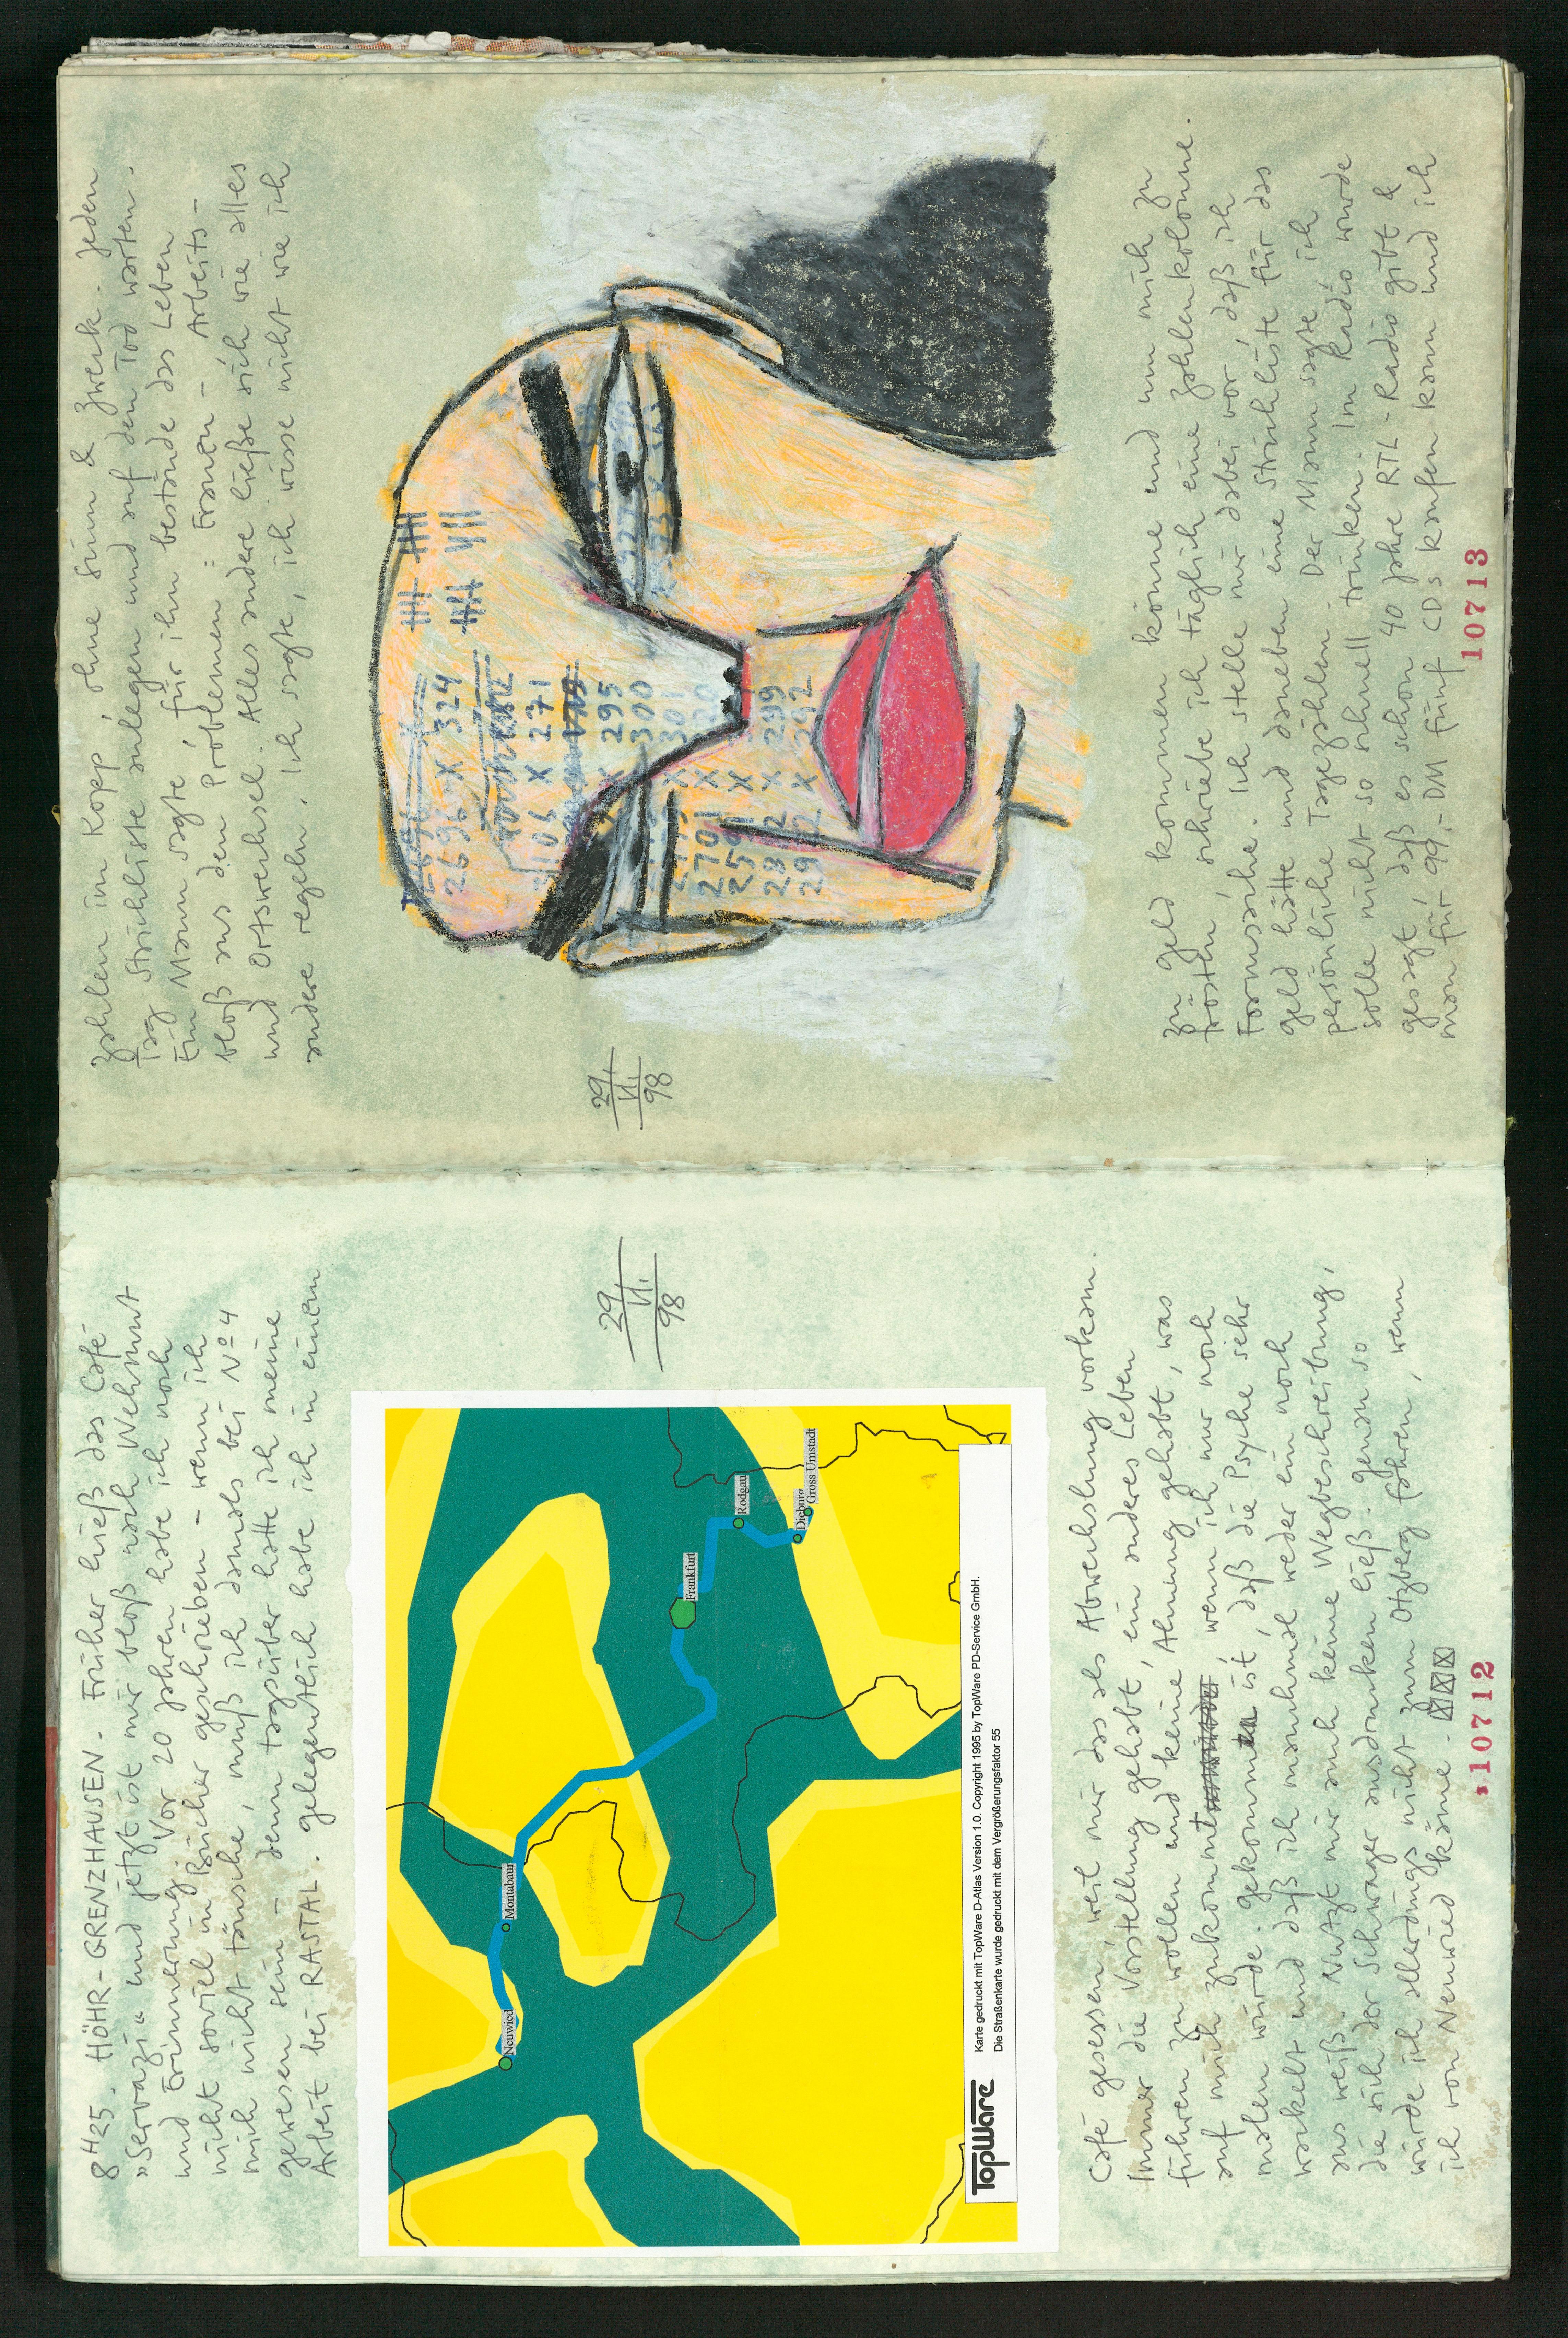 8 H 25. HÖHR-GRENZHAUSEN - Früher hieß das Café
„Servazi“ und jetzt ist mir bloß noch Wehmut
und Erinnerung. Vor 20 Jahren habe ich noch
nicht soviel in Bücher geschrieben - wenn ich
mich nicht täusche, muß ich damals bei Nº 4
gewesen sein - denn tagsüber hatte ich meine
Arbeit bei RASTAL. Gelegentlich habe ich in einem
29.
VI.
98
Neuwied
Montabaur
Frankfurt
Rodgau
Dieburg
Gross Umstadt
TopWare
Karte gedruckt mit TopWare D-Atlas Version 1.0. Copyright 1995 by TopWare PD-Service GmbH.
Die Straßenkarte wurde gedruckt mit dem Vergrößerungsfaktor 55
Café gesessen, weil mir das als Abwechslung vorkam.
Immer die Vorstellung gehabt, ein anderes Leben
führen zu wollen und keine Ahnung gehabt, was
auf mich zukommt, wenn ich nur noch
malen würde. Gekommen ist, daß die Psyche sehr
wackelt und daß ich manchmal weder ein noch
aus weiß. Nutzt mir auch keine Wegbeschreibung,
die sich der Schwager ausdrucken ließ. Genau so
würde ich allerdings nicht zum Otzberg fahren, wenn
ich von Neuwied käme -
10712
Zahlen im Kopp, ohne Sinn & Zweck. Jeden
Tag Strichliste anlegen und auf den Tod warten.
Ein Mann sagte, für ihn bestände das Leben
bloß aus den Problemen: Frauen - Arbeits-
und Ortswechsel. Alles andere ließe sich wie alles
andere regeln. Ich sagte, ich wisse nicht wie ich
29.
VI.
98
2696 X 324
X 271
295
300
301
2701 X
X 299
292
zu Geld kommen könne und um mich zu
trösten, schriebe ich täglich eine Zahlenkolonne.
Formsache. Ich stelle mir dabei vor, daß ich
Geld hätte und daneben eine Strichliste für das
persönliche Tagezählen. Der Mann sagte, ich
solle nicht so schnell trinken. Im Radio wurde
gesagt, daß es schon 40 Jahre RTL-Radio gibt &
man für 99,- DM fünf CDs kaufen kann und ich
10713